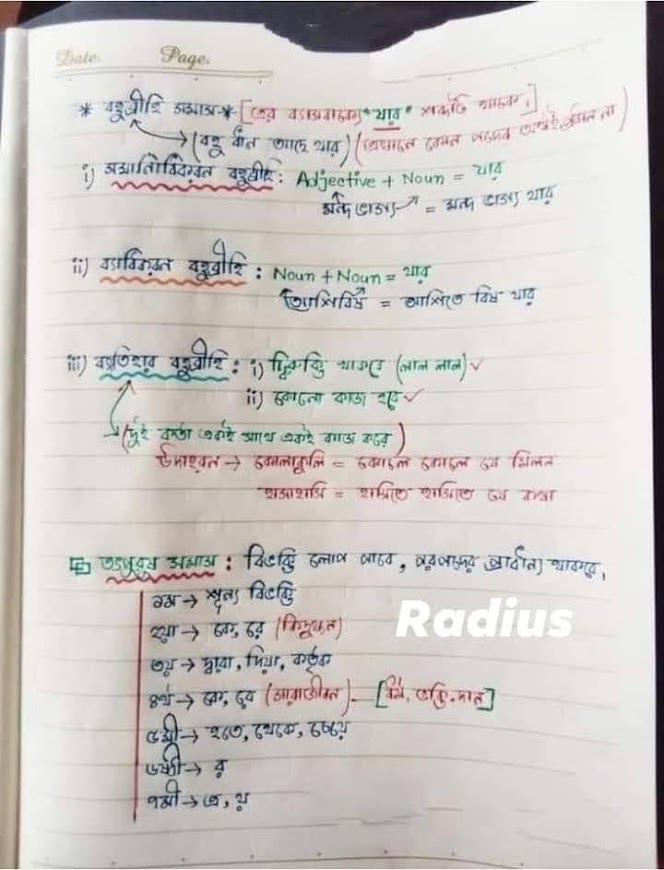 Date. Page.
* বহুব্রীহি সমাস * [এর ব্যাসবাক্যে "যার" শব্দটি থাকে।]
→ (বহু ধান আছে যার) (এখানে কোন পদের অর্থই প্রধান না)
i) সমানাধিকরন বহুব্রীহি : Adjective + Noun = যার
মন্দভাগ্য = মন্দ ভাগ্য যার
ii) ব্যাধিকরন বহুব্রীহি : Noun + Noun = যার
আশিবিষ = আশিতে বিষ যার
iii) ব্যতিহার বহুব্রীহি : i) দ্বিরুক্তি থাকবে (লাল লাল) ✓
ii) কোনো কাজ হবে ✓
→ (দুই কর্তা একই সাথে একই কাজ করে)
উদাহরন → কোলাকুলি = কোলে কোলে যে মিলন
হাসাহাসি = হাসিতে হাসিতে যে কথা
তৎপুরুষ সমাস : বিভক্তি লোপ পাবে, পরপদের প্রাধান্য থাকবে,
১ম → শূন্য বিভক্তি
Radius
২য়া → কে, রে
৩য় → দ্বারা, দিয়া, কর্তৃক
৪র্থ → কে, রে [ভক্তি, দান]
৫মী → হতে, থেকে, চেয়ে
৬ষ্ঠী → র
৭মী → এ, য়